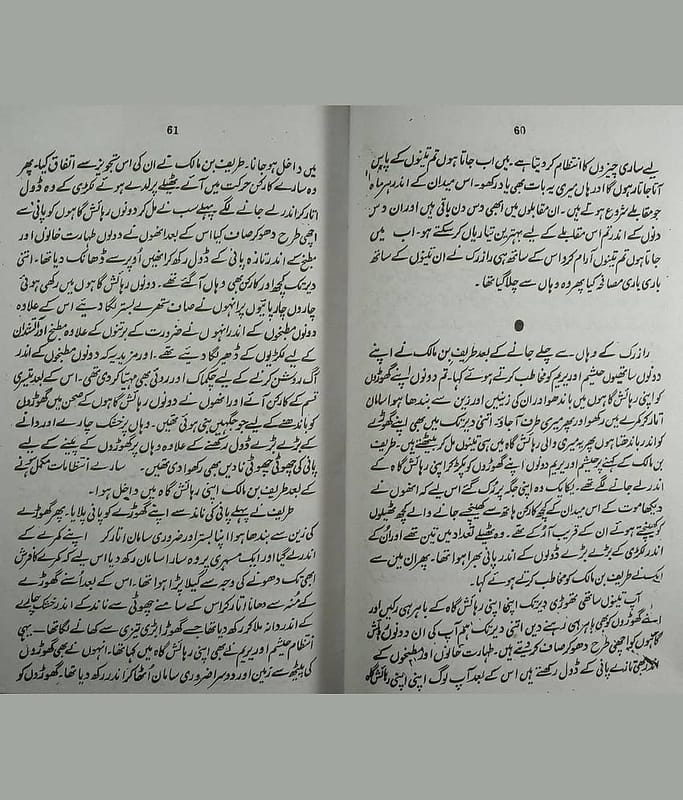 60
لیے ساری چیزوں کا انتظام کر دیتا ہے۔ میں اب جاتا ہوں تم تینوں کے پاس
آتا جاتا رہوں گا اور ہاں میری یہ بات بھی یاد رکھو۔ اس میدان کے اندر ہر ماہ
جو مقابلے شروع ہوتے ہیں۔ ان مقابلوں میں ابھی دس دن باقی ہیں اور ان دس
دنوں کے اندر تم اس مقابلے کے لیے بہترین تیاریاں کر سکتے ہو۔ اب میں
جاتا ہوں تم تینوں آرام کرو اس کے ساتھ ہی رازرک نے ان تینوں کے ساتھ
باری باری مصافحہ کیا پھر وہ وہاں سے چلا گیا تھا۔
رازرک کے وہاں سے چلے جانے کے بعد طریف بن مالک نے اپنے
دونوں ساتھیوں حیثم اور یریم کو مخاطب کرتے ہوئے کہا۔ تم دونوں اپنے گھوڑوں
کو اپنی رہائش گاہوں میں باندھو اور ان کی زینیں اور زین سے بندھا ہوا سامان
اتار کر کمرے میں رکھو اور پھر میری طرف آ جاؤ۔ اتنی دیر تک میں بھی اپنے گھوڑے
کو اندر باندھتا ہوں پھر یہ میری والی رہائش گاہ میں ہی تینوں مل کر بیٹھتے ہیں۔ طریف
بن مالک کے کہنے پر حیثم اور یریم دونوں اپنے گھوڑوں کو پکڑ کر اپنی رہائش گاہ کے
اندر لے جانے لگے تھے۔ یکایک وہ اپنی جگہ پر رک گئے اس لیے کہ انھوں نے
دیکھا موت کے اس میدان کے کچھ کارکن ہاتھ سے کھینچے جانے والے کچھ ٹھیلوں
کو کھینچتے ہوئے ان کے قریب آ رکے تھے۔ وہ ٹھیلے تعداد میں تین تھے اور ان کے
اندر لکڑی کے بڑے بڑے ڈولوں کے اندر پانی بھرا ہوا تھا۔ پھر ان میں سے
ایک نے طریف بن مالک کو مخاطب کرتے ہوئے کہا۔
آپ تینوں ساتھی تھوڑی دیر تک اپنی اپنی رہائش گاہ کے باہر ہی رکیں اور
اپنے گھوڑوں کو بھی باہر ہی رہنے دیں اتنی دیر تک ہم آپ کی ان دونوں رہائش
گاہوں کو اچھی طرح دھو کر صاف کر دیتے ہیں۔ طہارت خانوں اور مطبخوں کے
اندر بھی تازے پانی کے ڈول رکھتے ہیں اس کے بعد آپ لوگ اپنی اپنی رہائش گاہ
61
میں داخل ہو جانا۔ طریف بن مالک نے ان کی اس تجویز سے اتفاق کیا۔ پھر
وہ سارے کارکن حرکت میں آئے۔ ٹھیلے پر لدے ہوئے لکڑی کے وہ ڈول
اتار کر اندر لے جانے لگے پہلے سب نے مل کر دونوں رہائش گاہوں کو پانی سے
اچھی طرح دھو کر صاف کیا اس کے بعد انھوں نے دونوں طہارت خانوں اور
مطبخ کے اندر تازہ پانی کے ڈول رکھ کر انھیں اوپر سے ڈھانک دیا تھا۔ اتنی
دیر تک کچھ اور کارکن بھی وہاں آ گئے تھے۔ دونوں رہائش گاہوں میں رکھی ہوئی
چاروں چارپائیوں پر انہوں نے صاف ستھرے بستر لگا دیئے اس کے علاوہ
دونوں مطبخوں کے اندر انہوں نے ضرورت کے برتنوں کے علاوہ مطبخ اور آتشدان
کے لیے لکڑیوں کے ڈھیر لگا دیئے تھے۔ اور مزید یہ کہ دونوں مطبخوں کے اندر
آگ روشن کرنے کے لیے چقماق اور روئی بھی مہیا کر دی تھی۔ اس کے بعد تیسری
قسم کے کارکن آئے اور انھوں نے دونوں رہائش گاہوں کے صحن میں گھوڑوں
کو باندھنے کے لیے جو جگہیں بنی ہوئی تھیں۔ وہاں پر خشک چارے اور دانے
کے بڑے بڑے ڈول رکھنے کے علاوہ وہاں پر گھوڑوں کے پینے کے لیے
پانی کی چھوٹی چھوٹی ناندیں بھی رکھوا دی تھیں۔ سارے انتظامات مکمل ہونے
کے بعد طریف بن مالک اپنی رہائش گاہ میں داخل ہوا۔
طریف نے پہلے پانی کی ناند سے اپنے گھوڑے کو پانی پلایا۔ پھر گھوڑے
کی زین سے بندھا ہوا اپنا بستر اور ضروری سامان اتار کر اپنے کمرے کے
اندر لے گیا اور ایک مسہری پر وہ سارا سامان رکھ دیا اس لیے کہ کمرے کا فرش
ابھی تک دھونے کی وجہ سے گیلا پڑا ہوا تھا۔ اس کے بعد اسنے گھوڑے
کے منہ سے دھانا اتار کر اس کے سامنے چھوٹی سے ناند کے اندر خشک چارے
کے اندر دانہ ملا کر رکھ دیا تھا جسے گھوڑا بڑی تیزی سے کھانے لگا تھا۔ یہی
انتظام حیثم اور یریم نے بھی اپنی رہائش گاہ میں کیا تھا۔ انہوں نے بھی گھوڑوں
کی پیٹھ سے زین اور دوسرا ضروری سامان اٹھا کر اندر رکھ دیا تھا۔ گھوڑوں کو